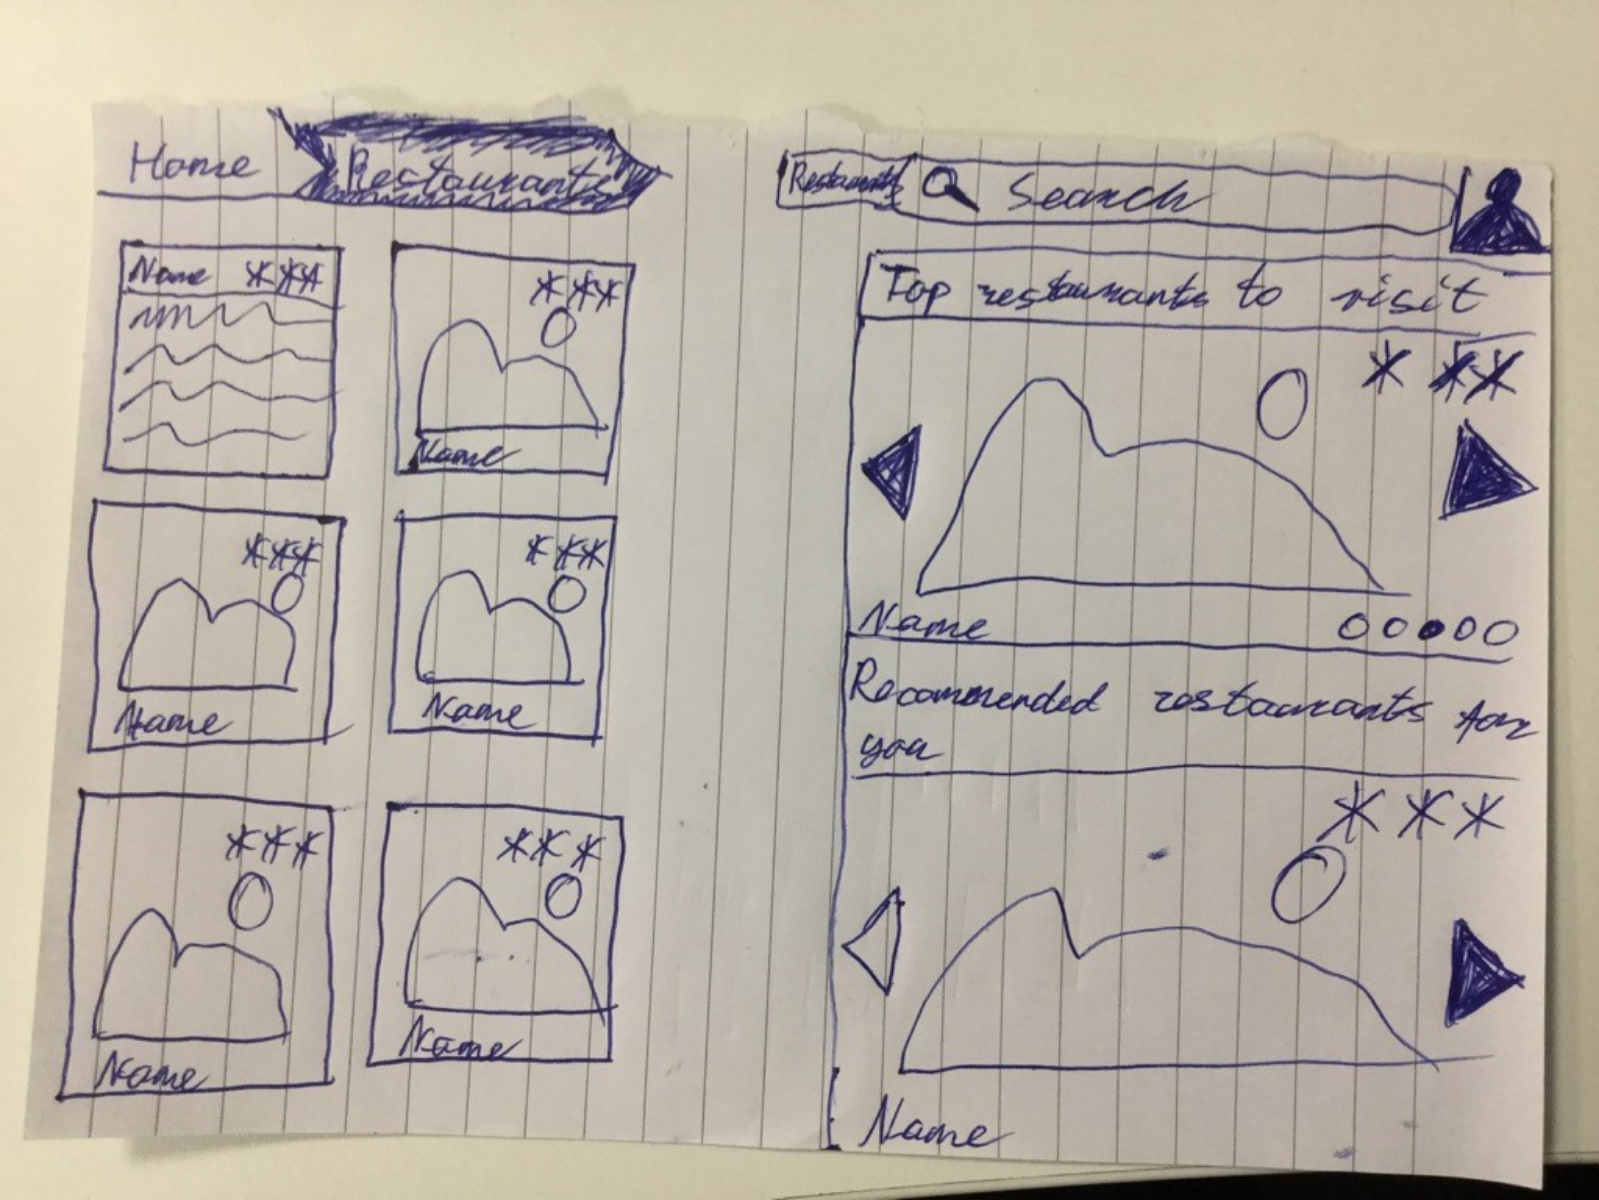 Home Restaurants
Name ***
*** Name
*** Name
*** Name
*** Name
*** Name
Restaurants Search
Top restaurants to visit
***
Name
Recommended restaurants for
you
***
Name